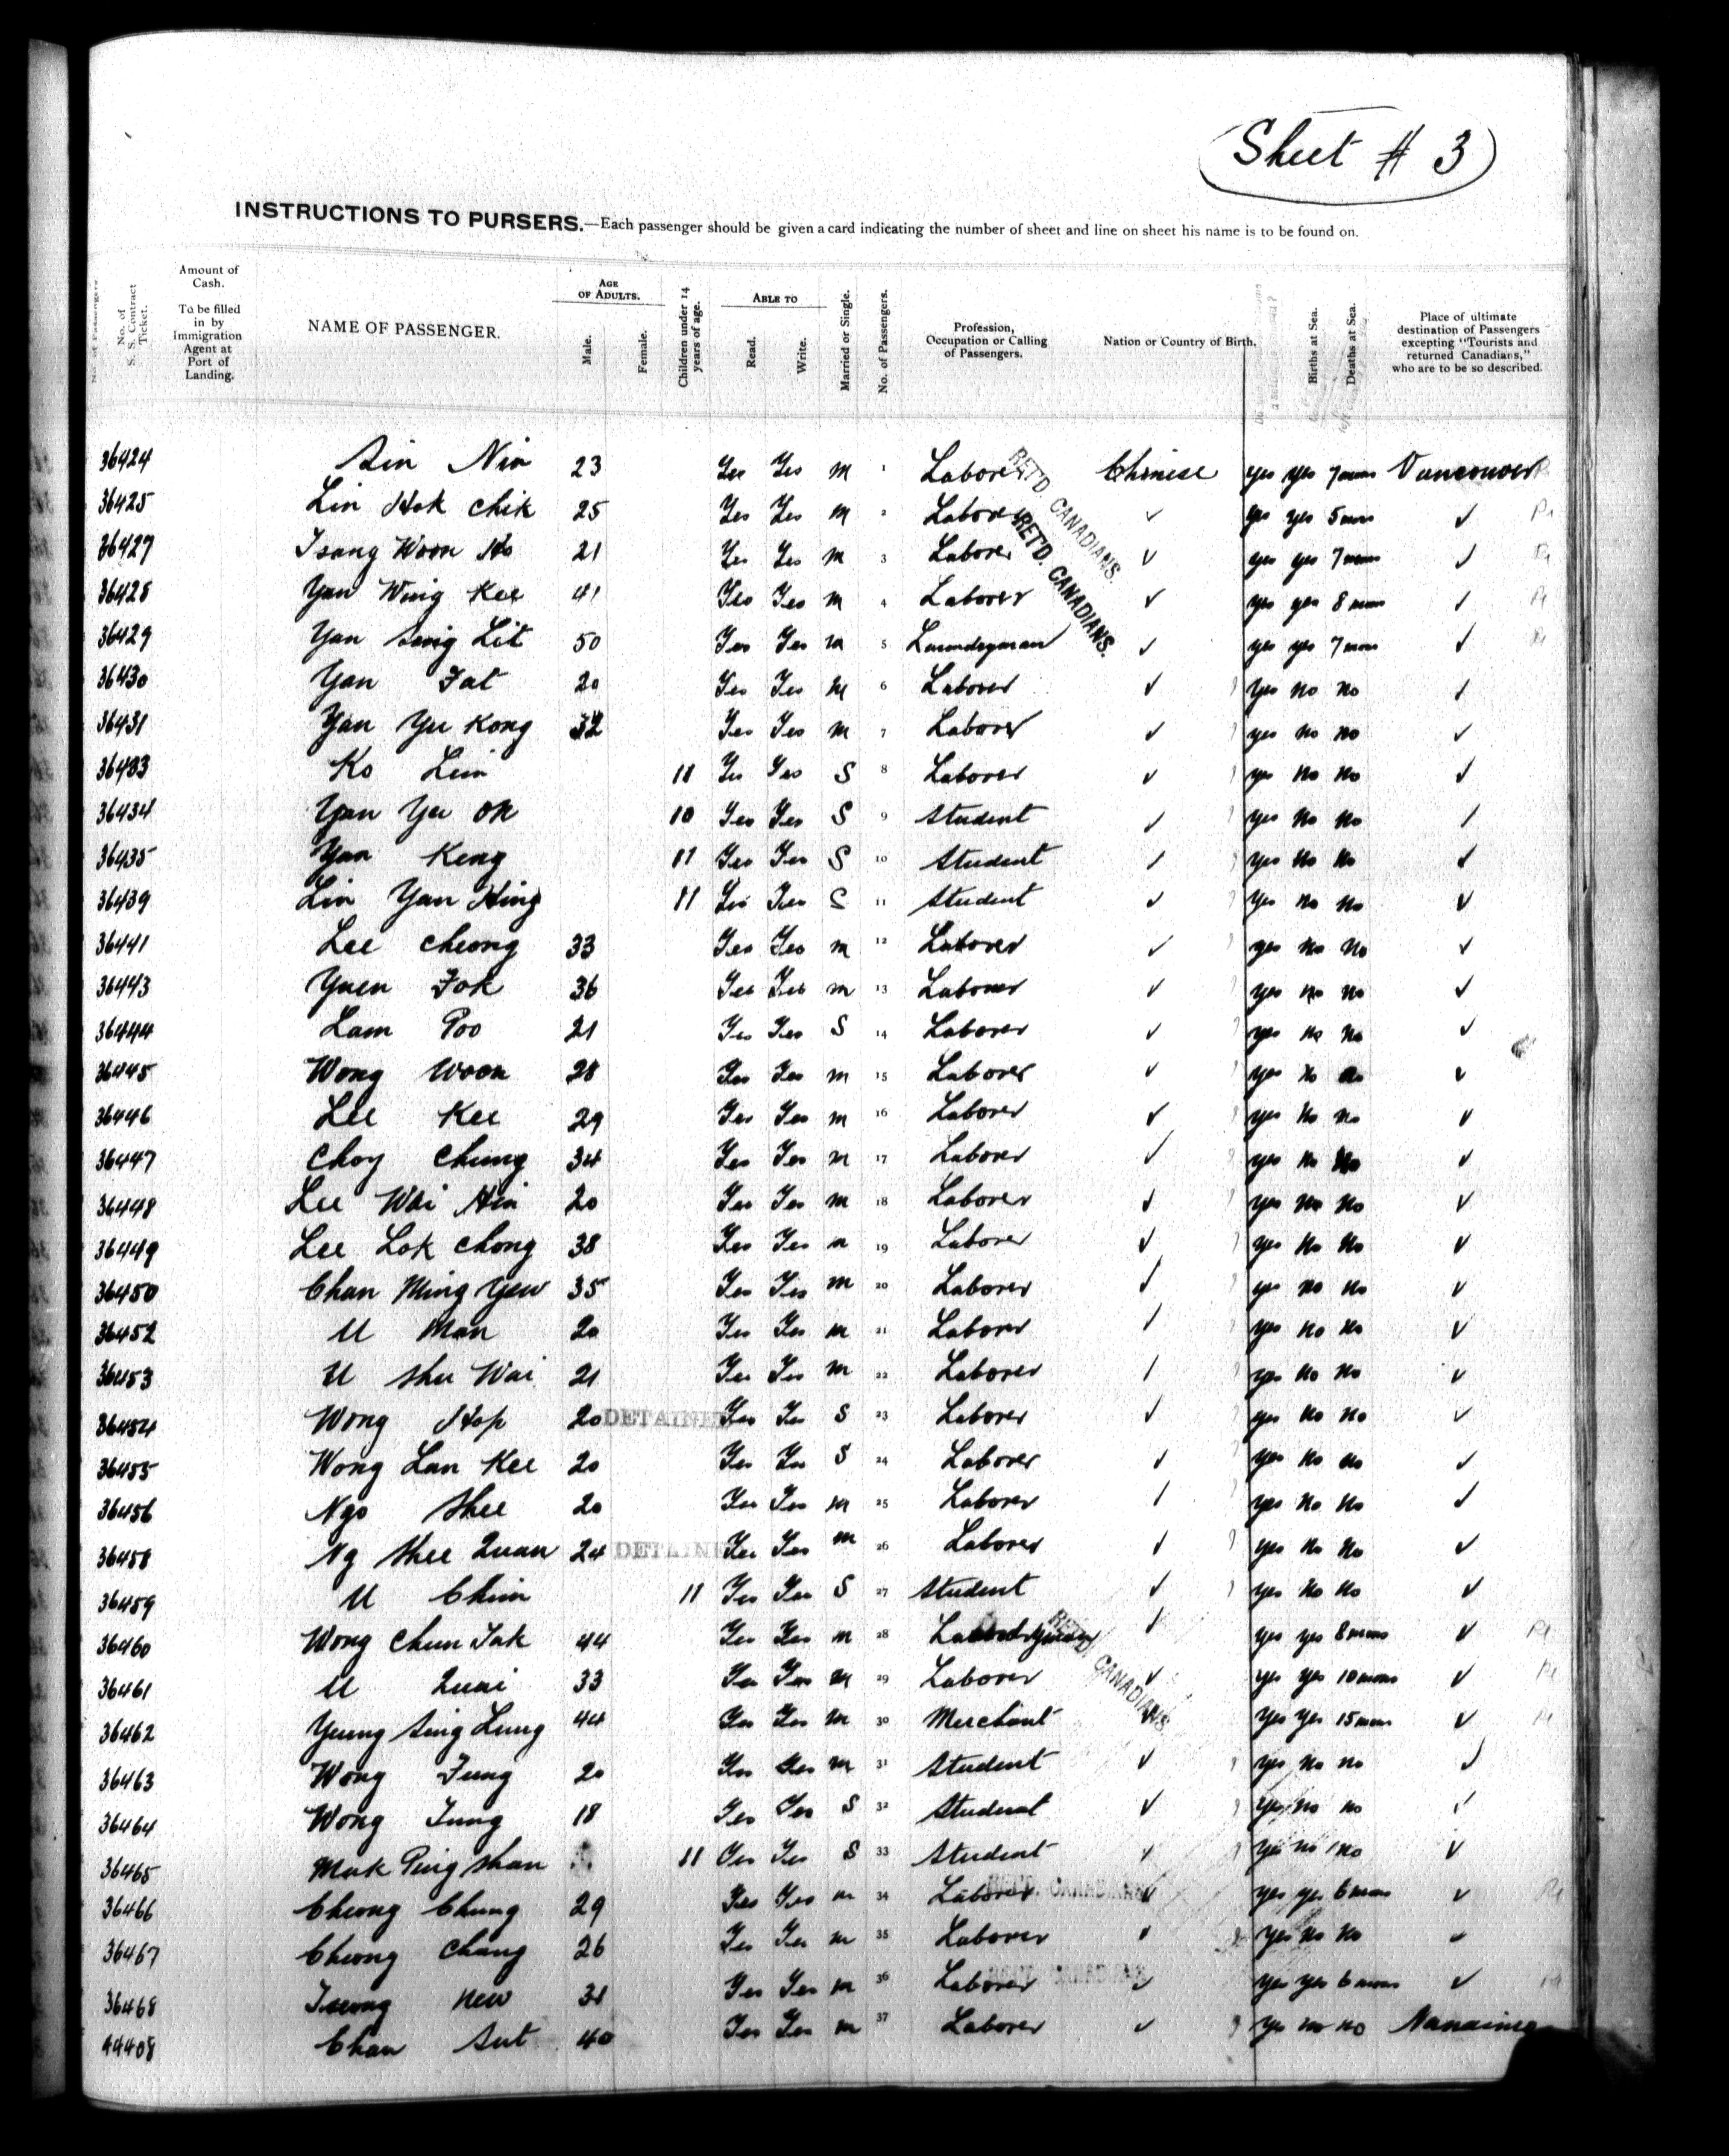 Sheet # 3
INSTRUCTIONS TO PURSERS.—Each passenger should be given a card indicating the number of sheet and line on sheet his name is to be found on.
No. of S. S. Contract Ticket.
Amount of Cash. To be filled in by Immigration Agent at Port of Landing.
NAME OF PASSENGER.
AGE OF ADULTS. Male. Female.
Children under 14 years of age.
ABLE TO Read. Write.
Married or Single.
No. of Passengers.
Profession, Occupation or Calling of Passengers.
Nation or Country of Birth.
Births at Sea.
Deaths at Sea.
Place of ultimate destination of Passengers excepting "Tourists and returned Canadians," who are to be so described.
36424 Sin Nin 23 Yes Yes m 1 Laborer Chinese yes yes 7 mons Vancouver
36425 Lin Hok Chik 25 Yes Yes m 2 Laborer ✓ yes yes 5 mons ✓
36427 Tsang Woon Ho 21 Yes Yes m 3 Laborer ✓ yes yes 7 mons ✓
36428 Yan Wing Kee 41 Yes Yes m 4 Laborer ✓ yes yes 8 mons ✓
36429 Yan Seng Lit 50 Yes Yes m 5 Laundryman ✓ yes yes 7 mons ✓
RET'D. CANADIANS.
RET'D. CANADIANS.
36430 Yan Fat 20 Yes Yes m 6 Laborer ✓ yes no no ✓
36431 Yan Yu Kong 32 Yes Yes m 7 Laborer ✓ yes no no ✓
36433 Ko Lim 11 Yes Yes S 8 Laborer ✓ yes no no ✓
36434 Yan Yu On 10 Yes Yes S 9 Student ✓ yes no no ✓
36435 Yan Keng 11 Yes Yes S 10 Student ✓ yes no no ✓
36439 Lin Yan Hing 11 Yes Yes S 11 Student ✓ yes no no ✓
36441 Lee Cheong 33 Yes Yes m 12 Laborer ✓ yes no no ✓
36443 Yuen Fok 36 Yes Yes m 13 Laborer ✓ yes no no ✓
36444 Lam Poo 21 Yes Yes S 14 Laborer ✓ yes no no ✓
36445 Wong Woon 28 Yes Yes m 15 Laborer ✓ yes no no ✓
36446 Lee Kee 29 Yes Yes m 16 Laborer ✓ yes no no ✓
36447 Choy Chung 34 Yes Yes m 17 Laborer ✓ yes no no ✓
36448 Lee Wai Hin 20 Yes Yes m 18 Laborer ✓ yes no no ✓
36449 Lee Lok Chong 38 Yes Yes m 19 Laborer ✓ yes no no ✓
36450 Chan Ming Yew 35 Yes Yes m 20 Laborer ✓ yes no no ✓
36452 U Man 20 Yes Yes m 21 Laborer ✓ yes no no ✓
36453 U Shu Wai 21 Yes Yes m 22 Laborer ✓ yes no no ✓
36454 Wong Hop 20 DETAINED Yes Yes S 23 Laborer ✓ yes no no ✓
36455 Wong Lan Kee 20 Yes Yes S 24 Laborer ✓ yes no no ✓
36456 Ngo Shee 20 Yes Yes m 25 Laborer ✓ yes no no ✓
36458 Ng Shee Quan 24 DETAINED Yes Yes m 26 Laborer ✓ yes no no ✓
36459 U Chim 11 Yes Yes S 27 Student ✓ yes no no ✓
36460 Wong Chun Tak 44 Yes Yes m 28 Laundryman ✓ yes yes 8 mons ✓
36461 U Quai 33 Yes Yes m 29 Laborer ✓ yes yes 10 mons ✓
36462 Yeung Sing Lung 44 Yes Yes m 30 Merchant ✓ yes yes 15 mons ✓
RET'D. CANADIANS.
36463 Wong Fung 20 Yes Yes m 31 Student ✓ yes no no ✓
36464 Wong Tung 18 Yes Yes S 32 Student ✓ yes no no ✓
36465 Mak Ping Shan 11 Yes Yes S 33 Student ✓ yes no no ✓
36466 Cheong Chung 29 Yes Yes m 34 Laborer RET'D. CANADIANS ✓ yes yes 6 mons ✓
36467 Cheong Chang 26 Yes Yes m 35 Laborer ✓ yes no no ✓
36468 Tseung New 31 Yes Yes m 36 Laborer RET'D. CANADIANS ✓ yes yes 6 mons ✓
44408 Chan Sut 40 Yes Yes m 37 Laborer ✓ yes no no Nanaimo